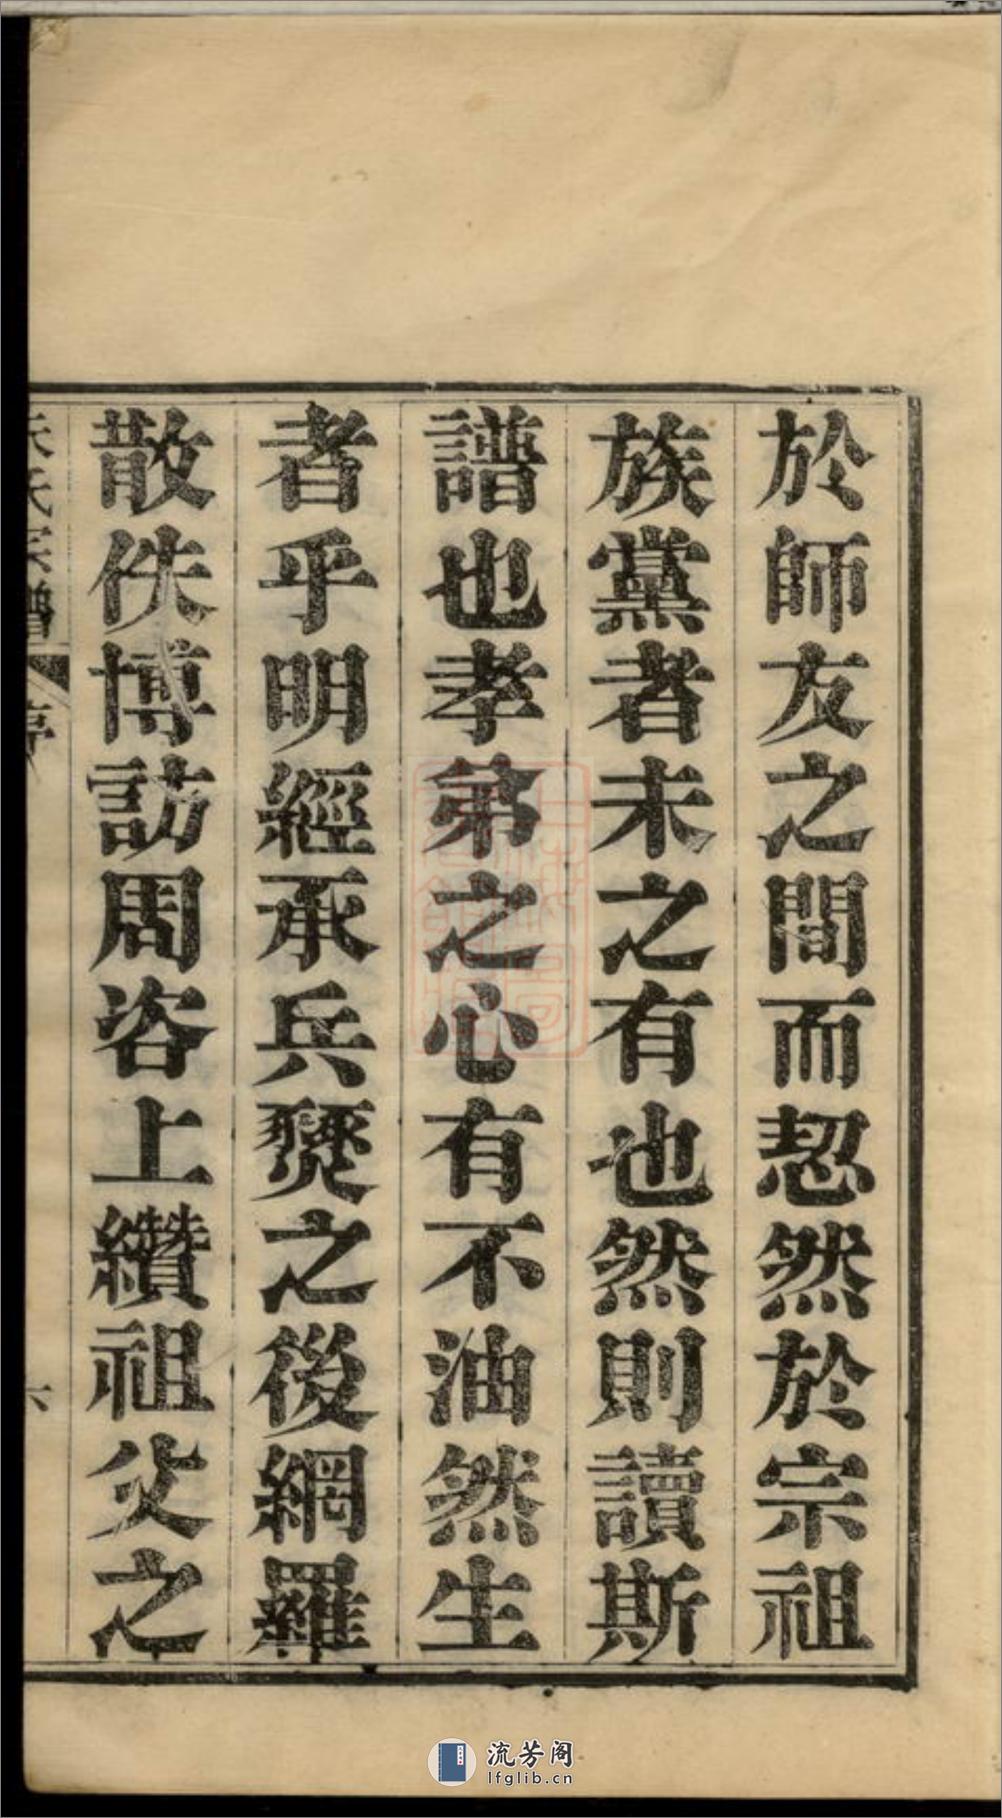 於師友之間而恝然於宗祖
族黨者未之有也然則讀斯
譜也孝弟之心有不油然生
者乎明經承兵燹之後網羅
散佚博訪周咨上纘祖父之
氏宗譜
序
六
流芳阁
lfglib.cn